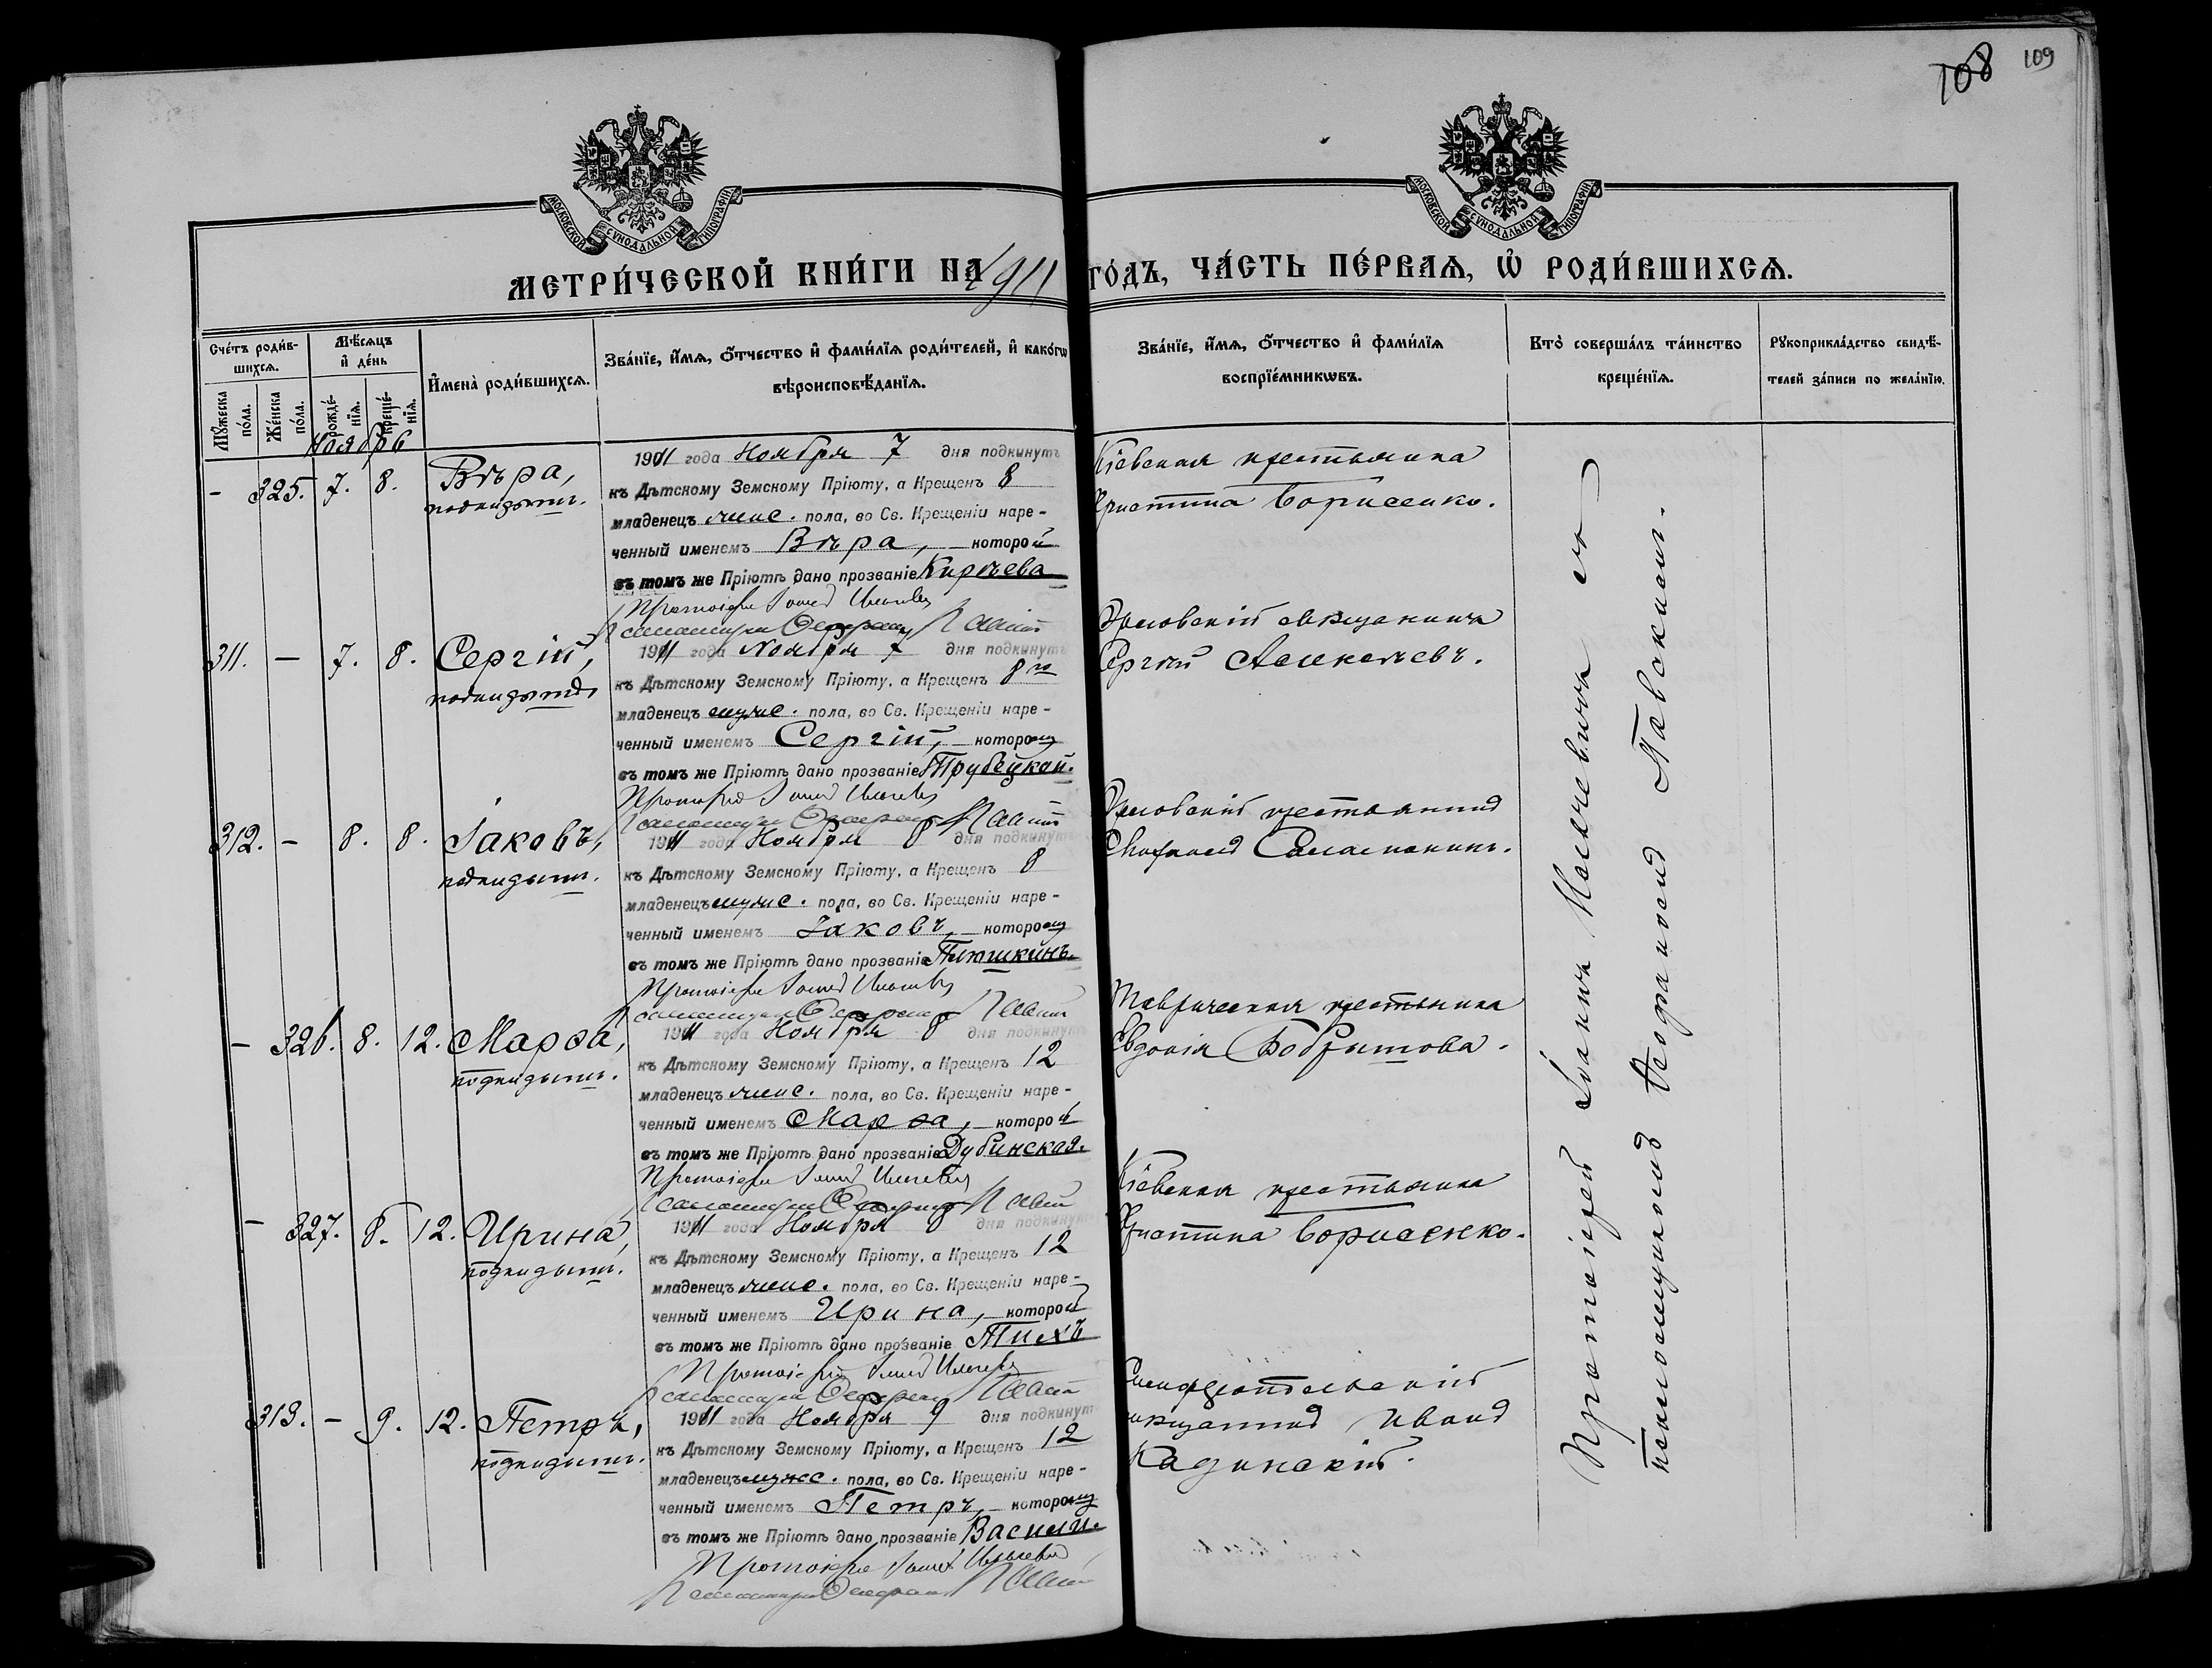 108 109
МОСКОВСКОЙ СѴНОДАЛЬНОЙ ТИПОГРАФІИ
МОСКОВСКОЙ СѴНОДАЛЬНОЙ ТИПОГРАФІИ
МЕТРИ́ЧЕСКОЙ КНИ́ГИ НА 1911 ГО́ДЪ, ЧА́СТЬ ПЕ́РВАѦ, Ѡ҆ РОДИ́ВШИХСѦ.
Сче́тъ роди́в-
шихсѧ.
Мѣ́сѧцъ
и҆ де́нь
Мꙋ́жеска
по́ла.
Же́нска
по́ла.
рожде́-
нїѧ.
креще́-
нїѧ.
И҆мена̀ роди́вшихсѧ.
Зва́нїе, и҆́мѧ, ѻ҆́тчество и҆ фами́лїѧ роди́телей, и҆ како́гѡ
вѣроисповѣ́данїѧ.
Зва́нїе, и҆́мѧ, ѻ҆́тчество и҆ фами́лїѧ
воспрїе́мникѡвъ.
Кто̀ соверша́лъ та́инство
креще́нїѧ.
Рꙋкоприкла́дство свидѣ́-
телей за́писи по жела́нїю.
Ноябрь
- 325. 7. 8. Вѣра,
подкидышъ.
1911 года Ноября 7 дня подкинутъ
къ Дѣтскому Земскому Пріюту, а Крещенъ 8
младенецъ женс. пола, во Св. Крещеніи наре-
ченный именемъ Вѣра, которой
въ томъ же Пріютѣ дано прозваніе Кирѣева
Протоіерей
Псаломщикъ
Кіевская крестьянка
Христина Борисенко.
311. - 7. 8. Сергій,
подкидышъ
1911 года Ноября 7 дня подкинутъ
къ Дѣтскому Земскому Пріюту, а Крещенъ 8го
младенецъ мужс. пола, во Св. Крещеніи наре-
ченный именемъ Сергій, которому
въ томъ же Пріютѣ дано прозваніе Трубецкой.
Протоіерей
Псаломщикъ
Орловскій мѣщанинъ
Сергѣй
312. - 8. 8. Іаковъ,
подкидышъ.
1911 года Ноября 8 дня подкинутъ
къ Дѣтскому Земскому Пріюту, а Крещенъ 8
младенецъ мужс. пола, во Св. Крещеніи наре-
ченный именемъ Іаковъ, которому
въ томъ же Пріютѣ дано прозваніе Плюшкинъ.
Протоіерей
Псаломщикъ
Орловскій крестьянинъ
- 326. 8. 12. Марѳа,
подкидышъ.
1911 года Ноября 8 дня подкинутъ
къ Дѣтскому Земскому Пріюту, а Крещенъ 12
младенецъ женс. пола, во Св. Крещеніи наре-
ченный именемъ Марѳа, которой
въ томъ же Пріютѣ дано прозваніе Дубинская.
Протоіерей
Псаломщикъ
Таврическая крестьянка
Евдокія Бобрышова.
- 327. 8. 12. Ирина,
подкидышъ.
1911 года Ноября 8 дня подкинутъ
къ Дѣтскому Земскому Пріюту, а Крещенъ 12
младенецъ женс. пола, во Св. Крещеніи наре-
ченный именемъ Ирина, которой
въ томъ же Пріютѣ дано прозваніе Тихъ
Протоіерей
Псаломщикъ
Кіевская крестьянка
Христина Борисенко.
313. - 9. 12. Петръ,
подкидышъ.
1911 года Ноября 9 дня подкинутъ
къ Дѣтскому Земскому Пріюту, а Крещенъ 12
младенецъ мужс. пола, во Св. Крещеніи наре-
ченный именемъ Петръ, которому
въ томъ же Пріютѣ дано прозваніе Василій.
Протоіерей
Псаломщикъ
Симферопольскій
мѣщанинъ Иванъ
Протоіерей Іоаннъ съ
псаломщикомъ Павскимъ.